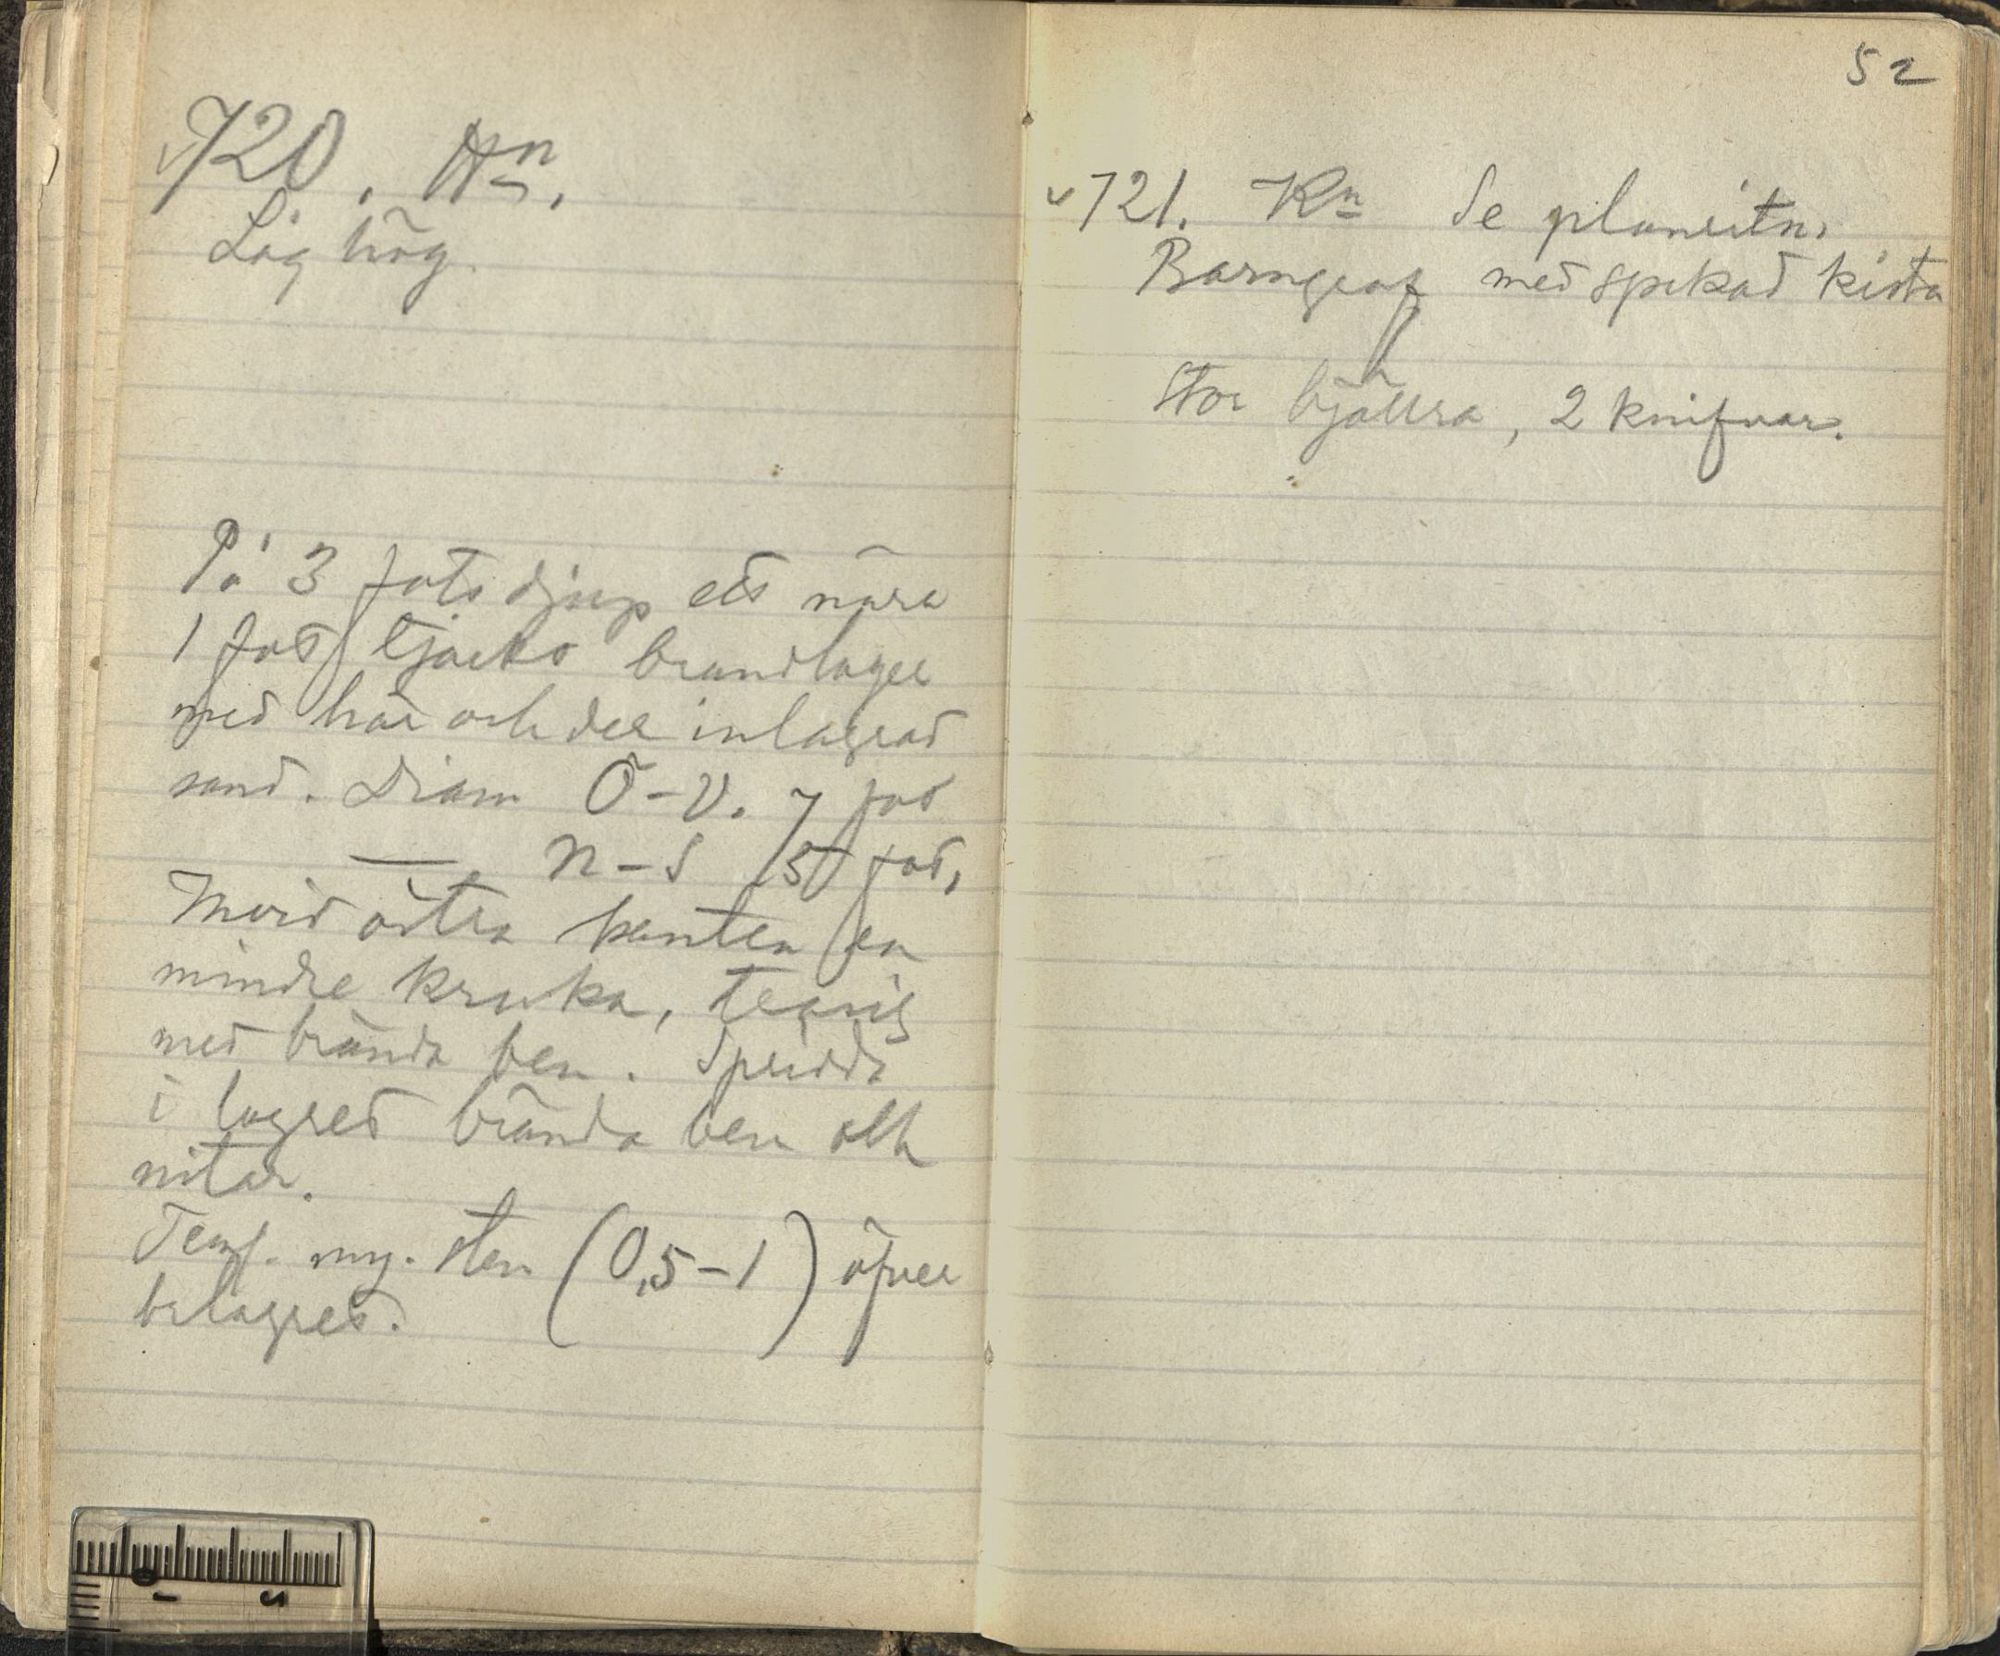 720. Hn.
Låg hög.
På 3 fots djup ett nära
1 fot tjockt brandlager
med här och der inlagrad
sand. Diam Ö-V. 7 fot
— N-S 5 fot,
Invid östra kanten en
mindre kruka,
med brända ben. Spridda
i lagret brända ben och
nitar.
my. sten (0,5-1) öfver
br lagret.
52
721. Kn Se planritn.
Barngraf med spikad kista
Stor bjällra, 2 knifvar.